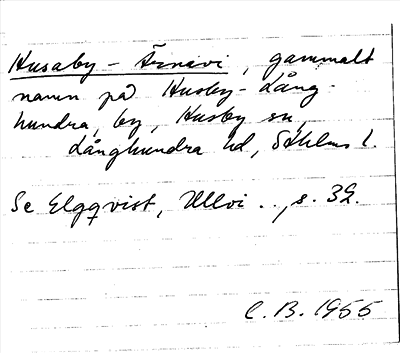 Husaby - Ärnavi, gammalt
namn på Husby-Lång-
hundra, by, Husby sn,
Långhundra hd, Sthlms l.
Se Elgqvist, Ullvi .., s. 32.
C. B. 1955